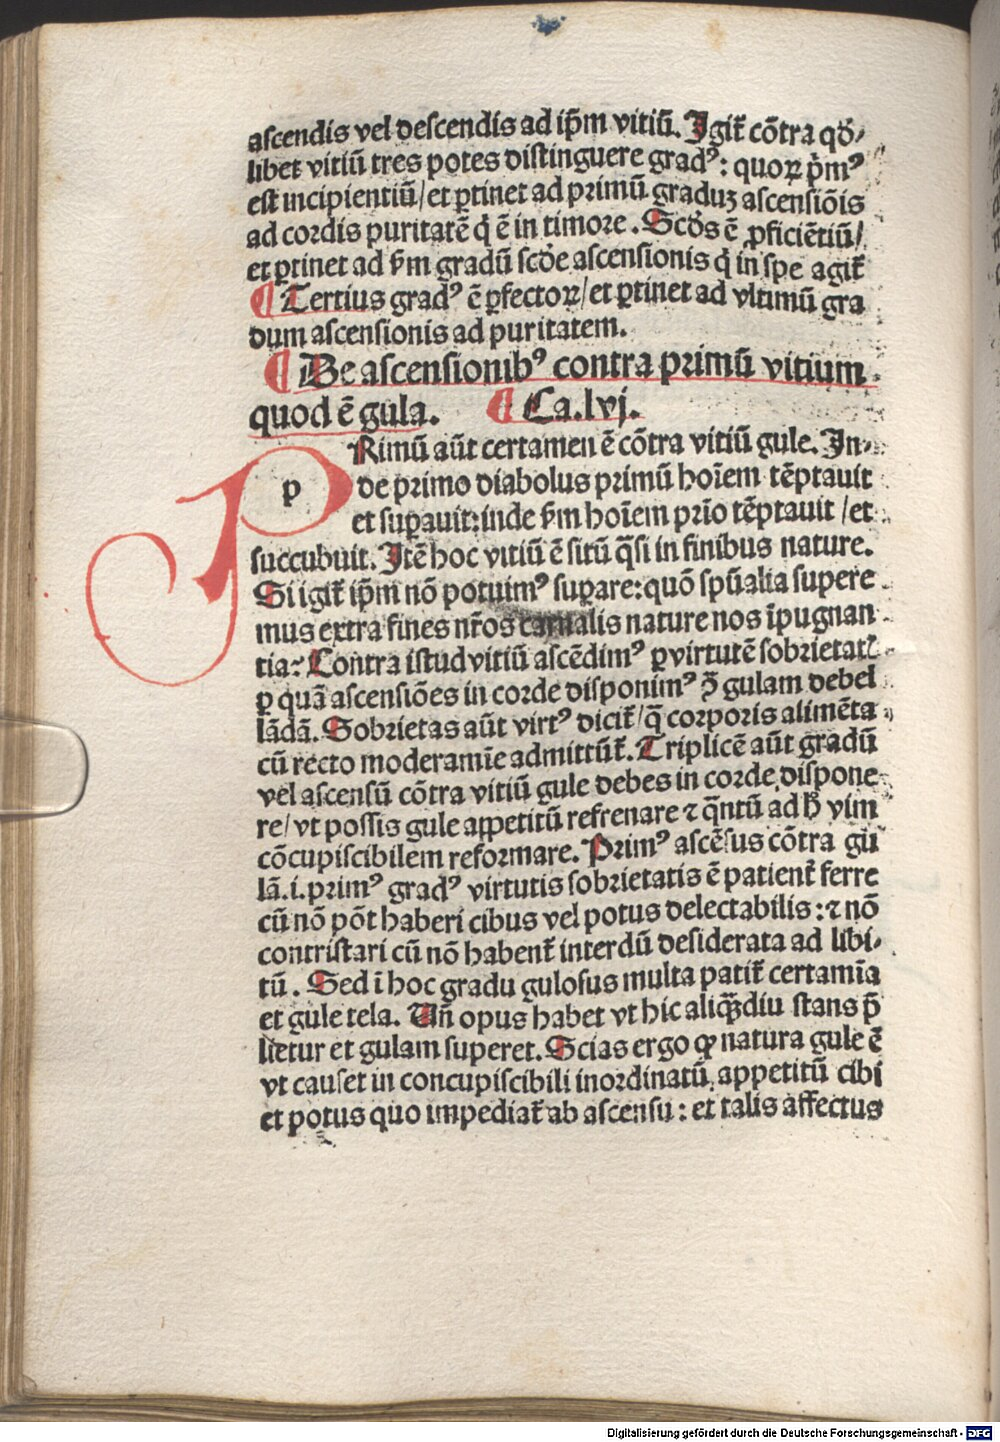 ascendis vel descendis ad ip̄m vitiū. Igit̄ cōtra qđ⸗
libet vitiū tres potes distinguere gradꝰ: quoꝝ p̄mꝰ
est incipientiū/et ꝑtinet ad primū graduꝫ ascensiōis
ad cordis puritatē q̇ ē in timore. Scđs ē ꝓficiētiū/
et ꝑtinet ad p̄m gradū scđe ascensionis q̇ in spe agit̄
¶ Tertius gradꝰ ē ꝑfectoꝝ/et ꝑtinet ad vltimū gra
dum ascensionis ad puritatem.
¶ De ascensionibꝰ contra primū vitium
quod ē gula. ¶ Ca.lvj.
p Rimū aūt certamen ē cōtra vitiū gule. In⸗
de primo diabolus primū hoīem tēptauit
et suꝑauit:inde p̄m hoīem prīo tēptauit /et
succubuit. Itē hoc vitiū ē sitū q̄si in finibus nature.
Si igit̄ ip̄m nō potuimꝰ suꝑare:quō sp̄ualia supere
mus extra fines nr̄os carnalis nature nos īpugnan
tia? Contra istud vitiū ascēdimꝰ ꝑ virtutē sobrietat̄
ꝑ quā ascensiōes in corde disponimꝰ ꝯ̄ gulam debel
lādā. Sobrietas aūt virtꝰ dicit̄/q̄ corporis alimēta
cū recto moderamīe admittūt̄. Triplicē aūt gradū
vel ascensū cōtra vitiū gule debes in corde dispone⸗
re/vt possis gule appetitū refrenare ⁊ q̄ntū ad h̄ vim
cōcupiscibilem reformare. Primꝰ ascēsus cōtra gu
lā.i.primꝰ gradꝰ virtutis sobrietatis ē patient̄ ferre
cū nō pōt haberi cibus vel potus delectabilis:⁊ nō
contristari cū nō habent̄ interdū desiderata ad libi⸗
tū. Sed ī hoc gradu gulosus multa patit̄ certamīa
et gule tela. Uñ opus habet vt hic aliqꝫdiu stans p̄
lietur et gulam superet. Scias ergo ꝙ natura gule ē
vt causet in concupiscibili inordinatū appetitū cibi
et potus quo impediat̄ ab ascensu: et talis affectus
Digitalisierung gefördert durch die Deutsche Forschungsgemeinschaft - DFG